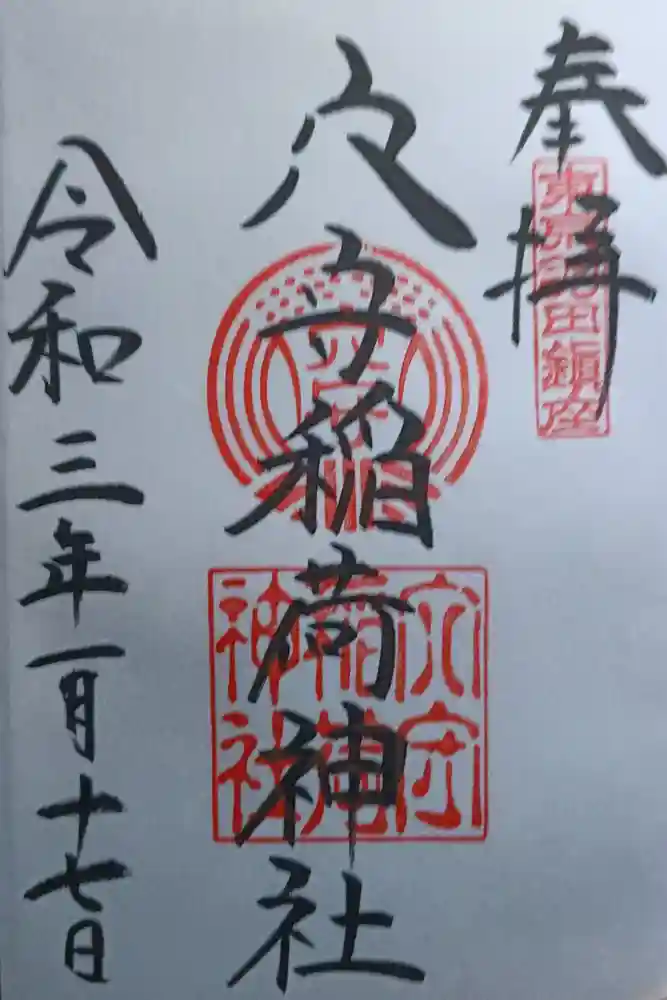 奉拝
東京羽田鎮座
穴守稲荷神社
穴守
稲荷
神社
令和三年一月十七日